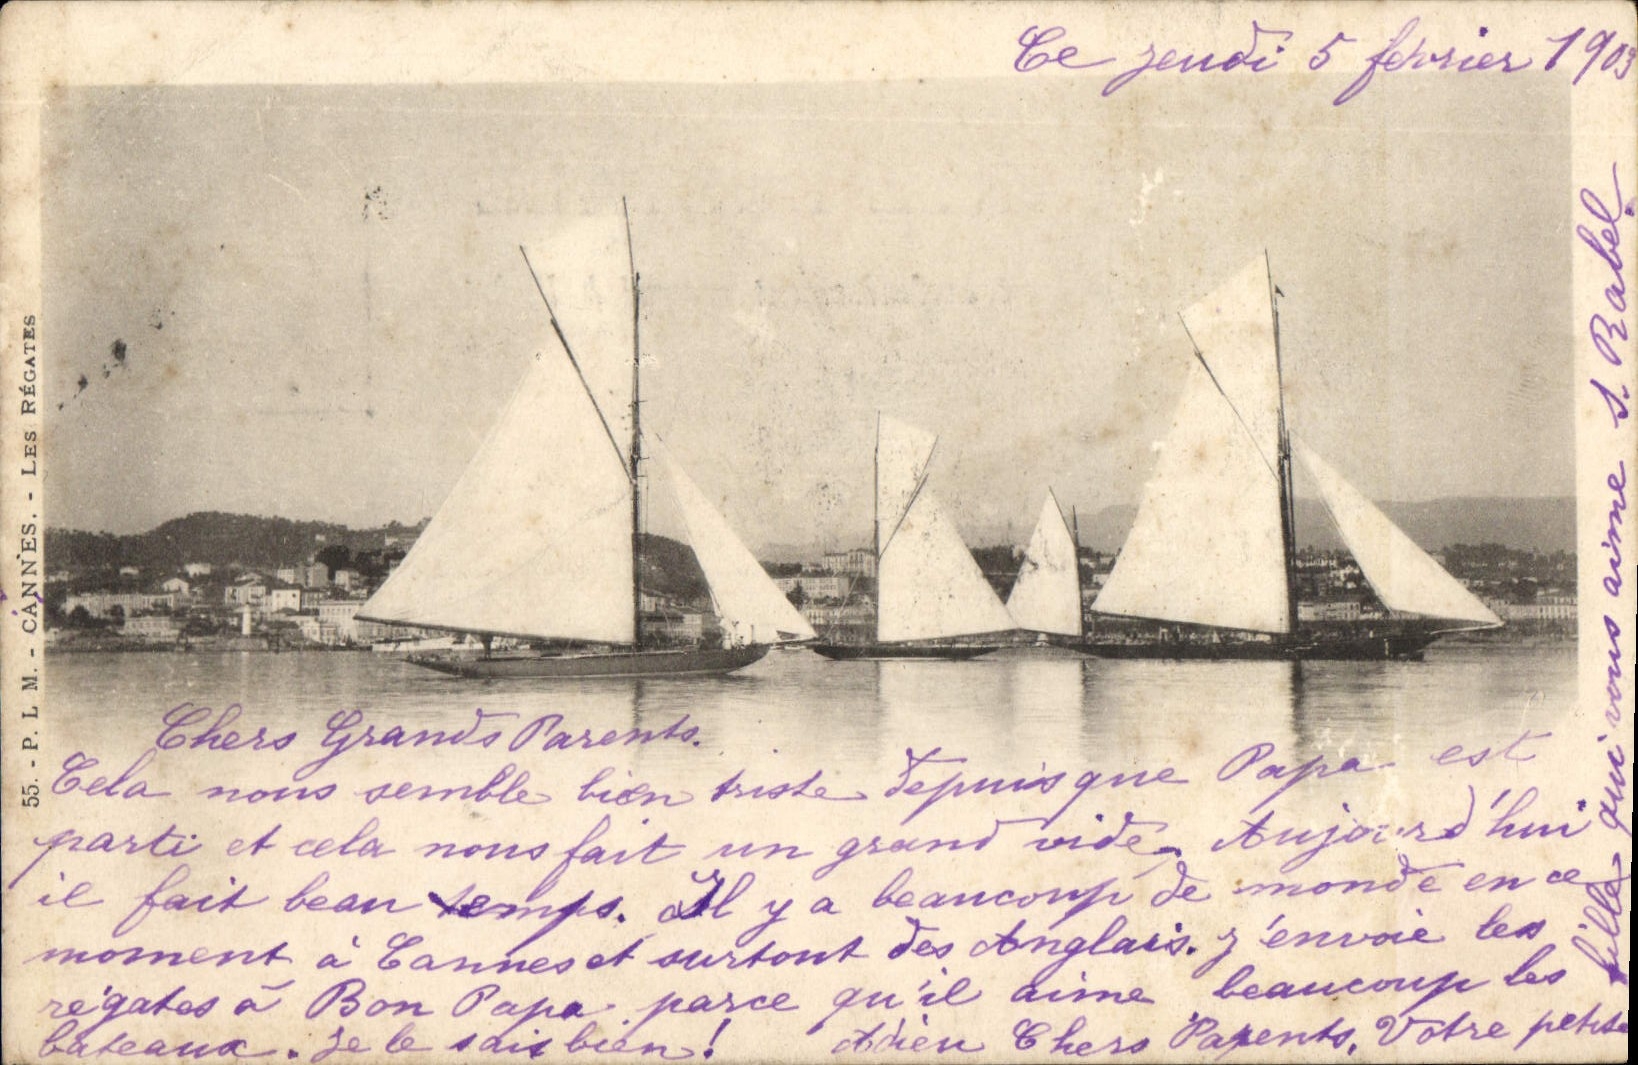 Ce jeudi 5 février 1903
55. - P. L. M. - CANNES. - LES RÉGATES
Chers Grands Parents.
Cela nous semble bien triste depuis que Papa est
parti et cela nous fait un grand vide. Aujourd'hui
il fait beau temps. Il y a beaucoup de monde en ce
moment à Cannes et surtout des Anglais. J'envoie les
régates à Bon Papa parce qu'il aime beaucoup les
bateaux. Je le sais bien! Adieu Chers Parents, Votre petite
fille qui vous aime S. Rabel